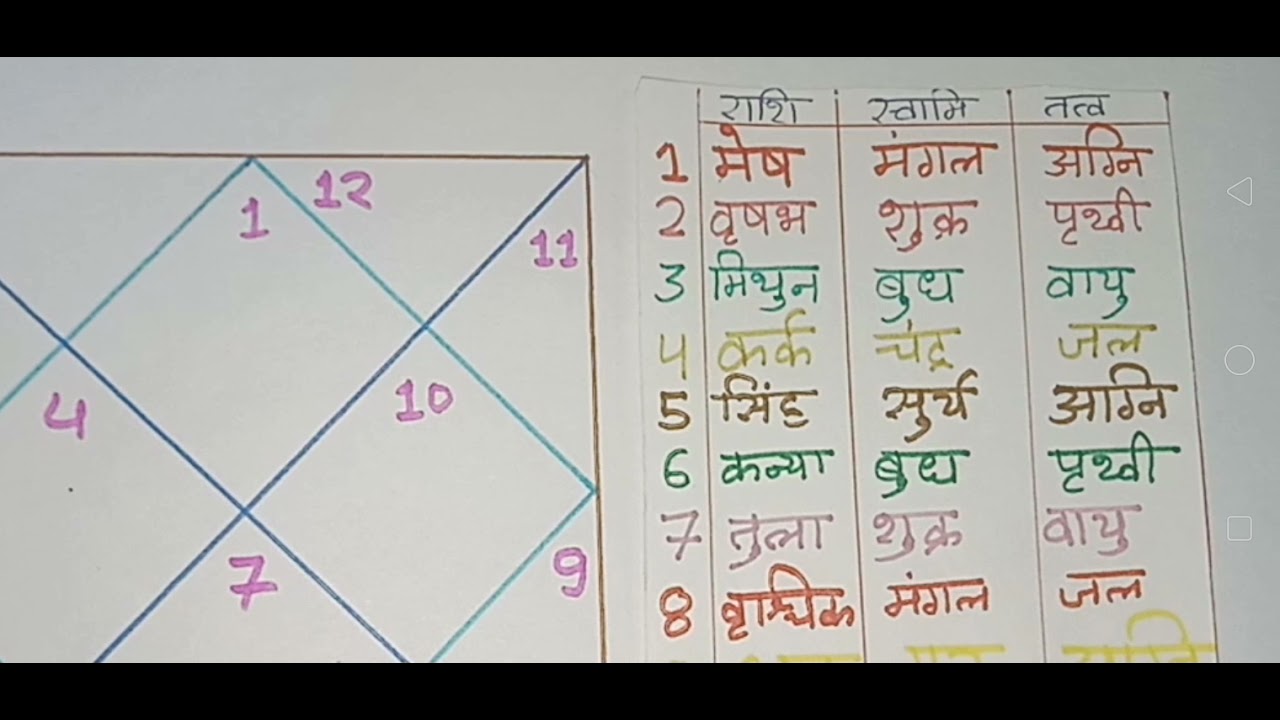 1
12
11
4
10
7
9
राशि स्वामि तत्व
1 मेष मंगल अग्नि
2 वृषभ शुक्र पृथ्वी
3 मिथुन बुध वायु
4 कर्क चंद्र जल
5 सिंह सुर्य अग्नि
6 कन्या बुध पृथ्वी
7 तुला शुक्र वायु
8 वृश्चिक मंगल जल